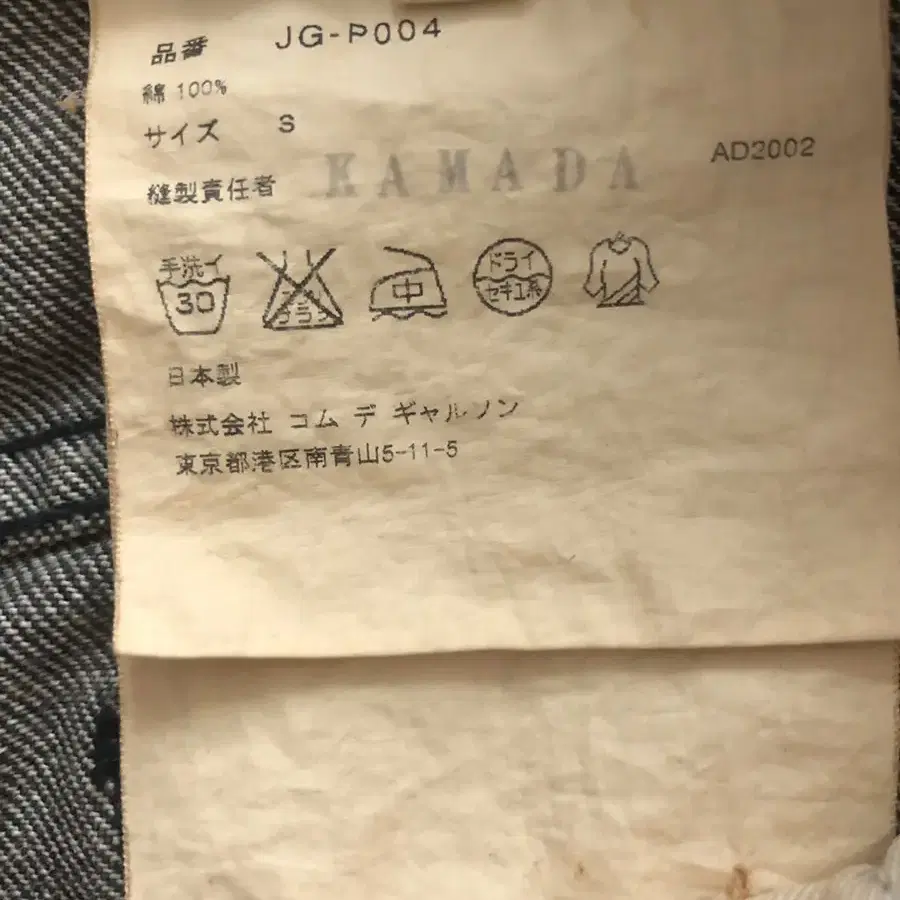 品番 JG-P004
綿 100%
サイズ S
AD2002
縫製責任者 KAMADA
手洗イ
30
中
ドライ
セキユ系
日本製
株式会社 コム デ ギャルソン
東京都港区南青山5-11-5